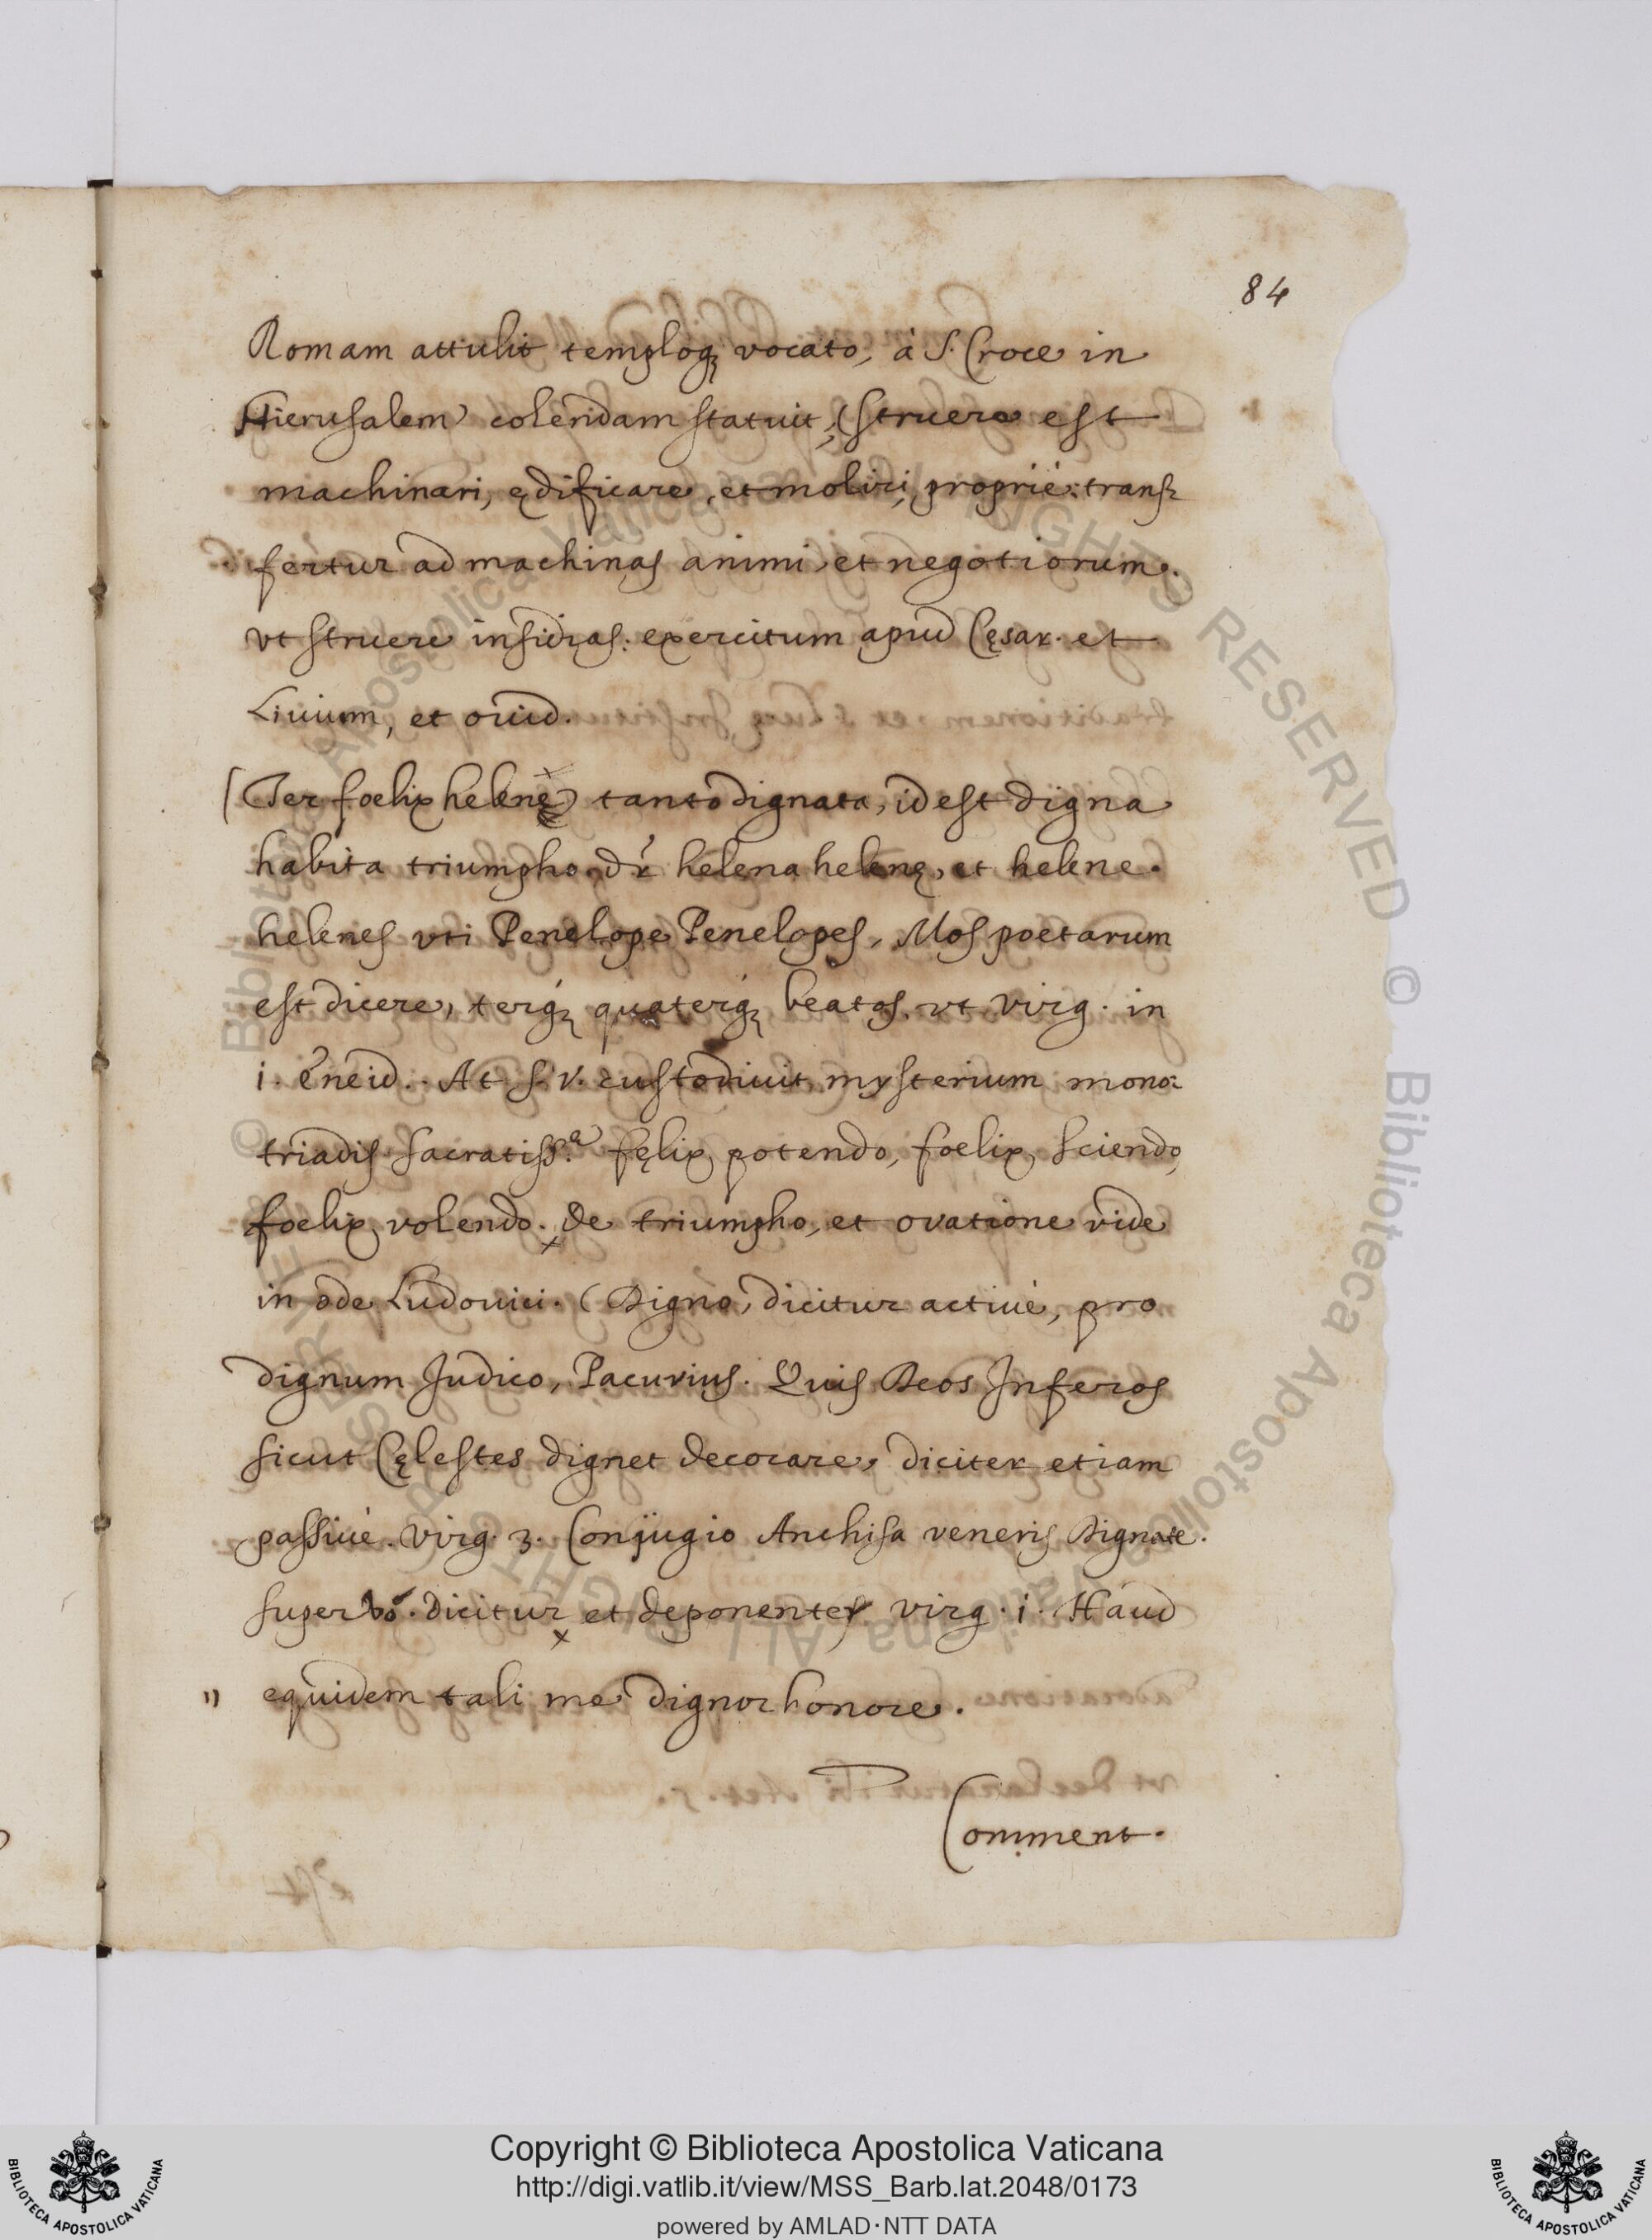 84
Romam attulit temploq; vocato, à S. Croce in
Hierusalem colendam statuit, (struere est
machinari, ędificare, et moliri, propriè: trans=
fertur ad machinas animi et negotiorum.
vt struere insidias: exercitum apud Cęsar. et
Liuium, et ouid.
(Ter foelix helenę) tanto dignata, id est digna
habita triumpho. dr̃ helena helenę, et helene.
helenes vti Penelope Penelopes, Mos poetarum
est dicere, terq́; quaterq́; beatos, vt virg. in
i. eneid. At S. V. custodiuit mysterium mono=
triadis sacratiss.ę fęlix potendo, foelix sciendo,
foelix volendo. de triumpho, et ovatione vide
in ode Ludouici. (Digno, dicitur actiuè, pro
dignum Judico, Pacuvius. Quis Deos Inferos
sicut Cęlestes dignet decorare, diciter etiam
passiuè. virg. 3. Conjugio Anchisa veneris Dignate.
superbo. dicitur et deponenter virg. i. Haud
" equidem tali me dignor honore.
Comment.
© Biblioteca Apostolica Vaticana ALL RIGHTS RESERVED
Copyright © Biblioteca Apostolica Vaticana
http://digi.vatlib.it/view/MSS_Barb.lat.2048/0173
powered by AMLAD·NTT DATA
BIBLIOTECA APOSTOLICA VATICANA
BIBLIOTECA APOSTOLICA VATICANA